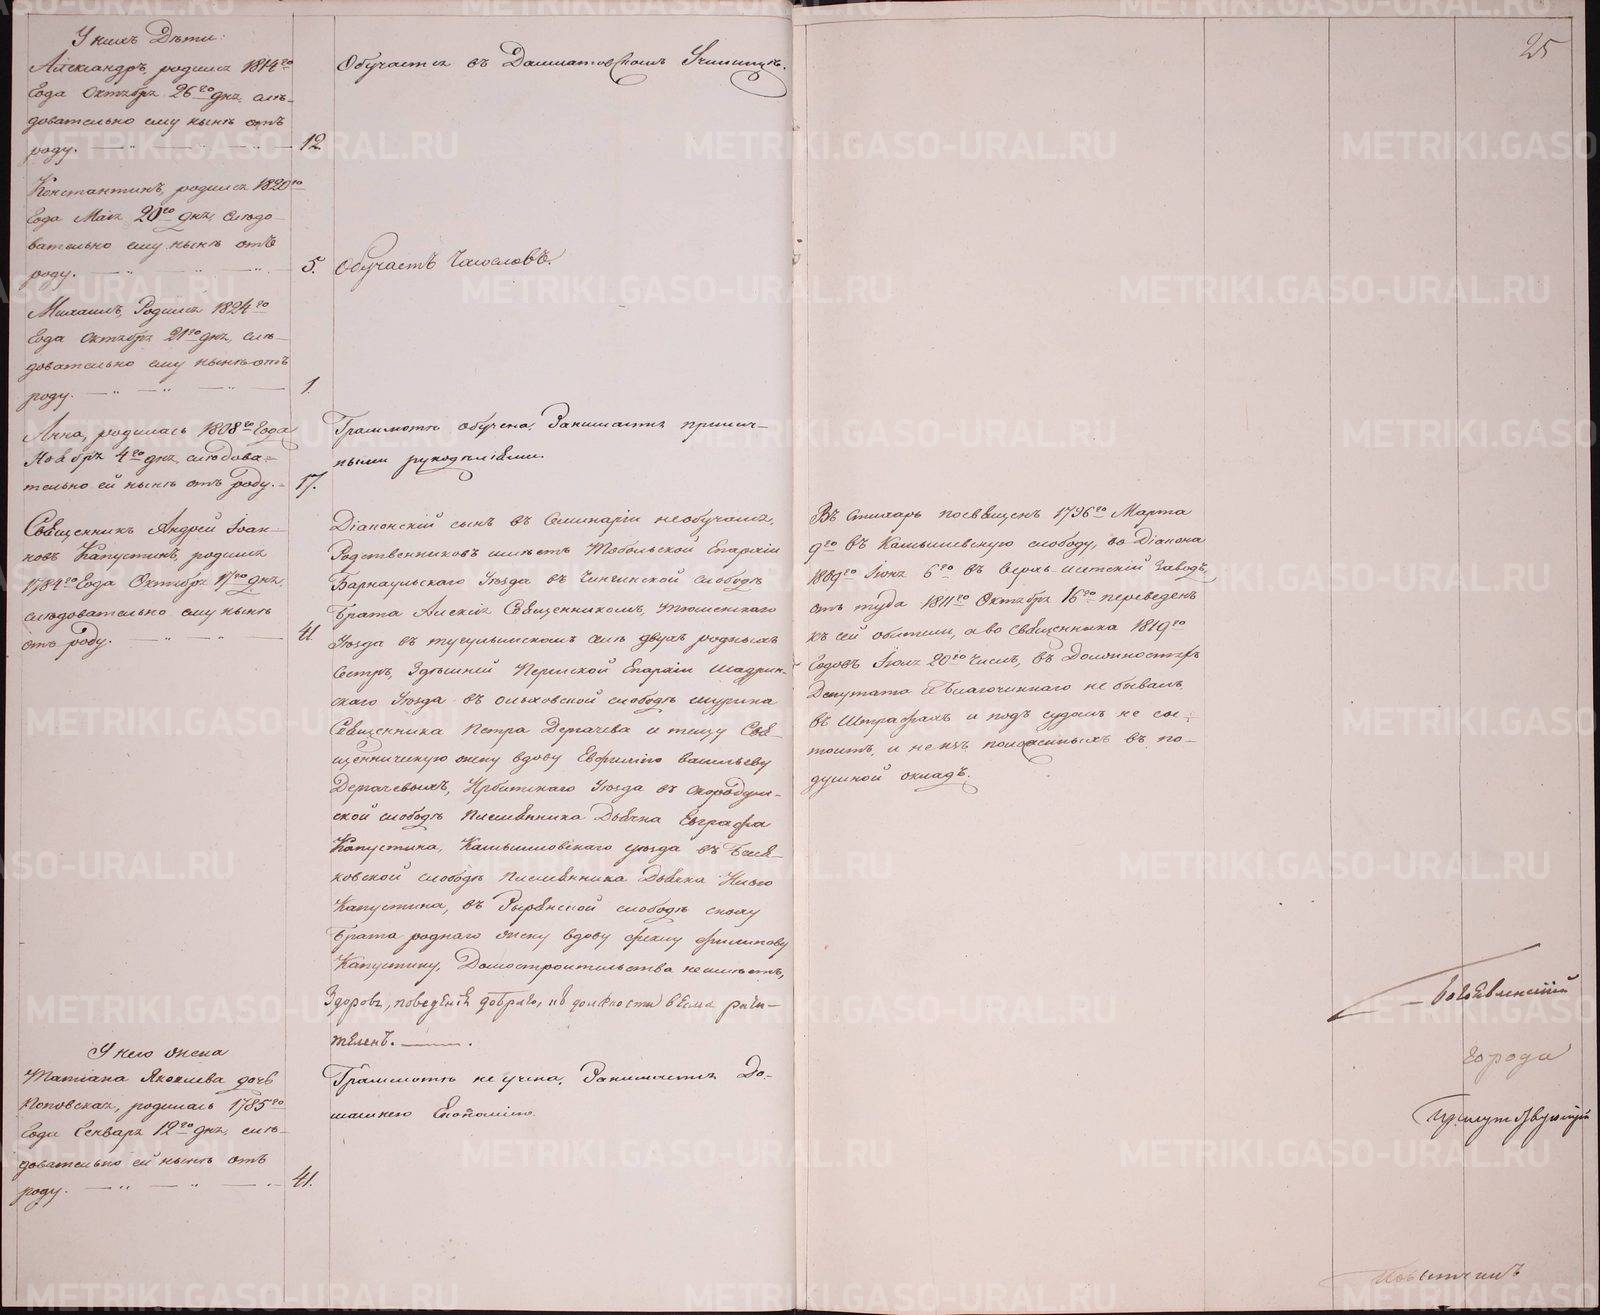 25
У нихъ Дѣти:
Александръ, родился 1814го
Года Октября 26го дня, слѣ-
довательно ему нынѣ отъ
роду. 12
Обучается въ Далматовскомъ Училищѣ.
Константинъ, родился 1820го
Года Маія 20го дня, слѣдо-
вательно ему нынѣ отъ
роду. 5.
Обучаетъ Часословъ.
Михаилъ, Родился 1824го
Года Октября 21го дня, слѣ-
довательно ему нынѣ отъ
роду. 1.
Анна, родилась 1808го Года
Ноября 4го дня, слѣдова-
тельно ей нынѣ отъ роду. 17.
Грамматѣ обучена, Занимается прилич-
ными рукодѣліями.
Священникъ Андрей Іоан-
новъ Капустинъ, родился
1784го Года Октября 17го дня,
слѣдовательно ему нынѣ
отъ роду. 41
Діаконскій сынъ въ Семинаріи необучался,
Родственниковъ имѣетъ Тобольской Епархіи
Барнаульскаго Уѣзда въ Чингинской слободѣ
Брата Алексія Священникомъ, Тюменскаго
Уѣзда въ тугулымскомъ селѣ двухъ родныхъ
Сестръ, Здѣшней Пермской Епархіи Шадрин-
скаго Уѣзда въ ольховской слободѣ шурина
Священника Петра Дерягева и тещу Свя-
щенническую жену вдову Евфимію васильеву
Дерягевыхъ, Ирбитскаго Уѣзда въ Скородум-
ской слободѣ племянника Дьячка Евграфа
Капустина, Камышловскаго уѣзда въ Беля-
ковской слободѣ племянника Дьячка Илью
Капустина, въ слободѣ сноху
Брата роднаго жену вдову феклу филипову
Капустину, Домостроительства неимѣетъ,
Здоровъ, поведенія добраго, въ должности весма рачи-
теленъ.
Въ стихарь посвященъ 1796го Марта
9го въ Камышевскую слободу, во Діакона
1809го Іюня 6го въ Верхъ-исетскій Заводъ,
отъ туда 1811го Октября 16го переведенъ
къ сей обители, а во священника 1819го
Годовъ Іюля 20го Числъ, въ Должностяхъ
Депутата и Благочиннаго не бывалъ,
въ Штрафахъ и подъ судомъ не со-
тоитъ, и не изъ положенныхъ въ по-
душной окладъ.
У него жена
Татіана Яковлева дочь
Поповская, родилась 1785го
Года Генваря 12го дня, слѣ-
довательно ей нынѣ отъ
роду. 41.
Грамматѣ не учена, Занимается До-
машнею Економіею.
Богоявленскій
города